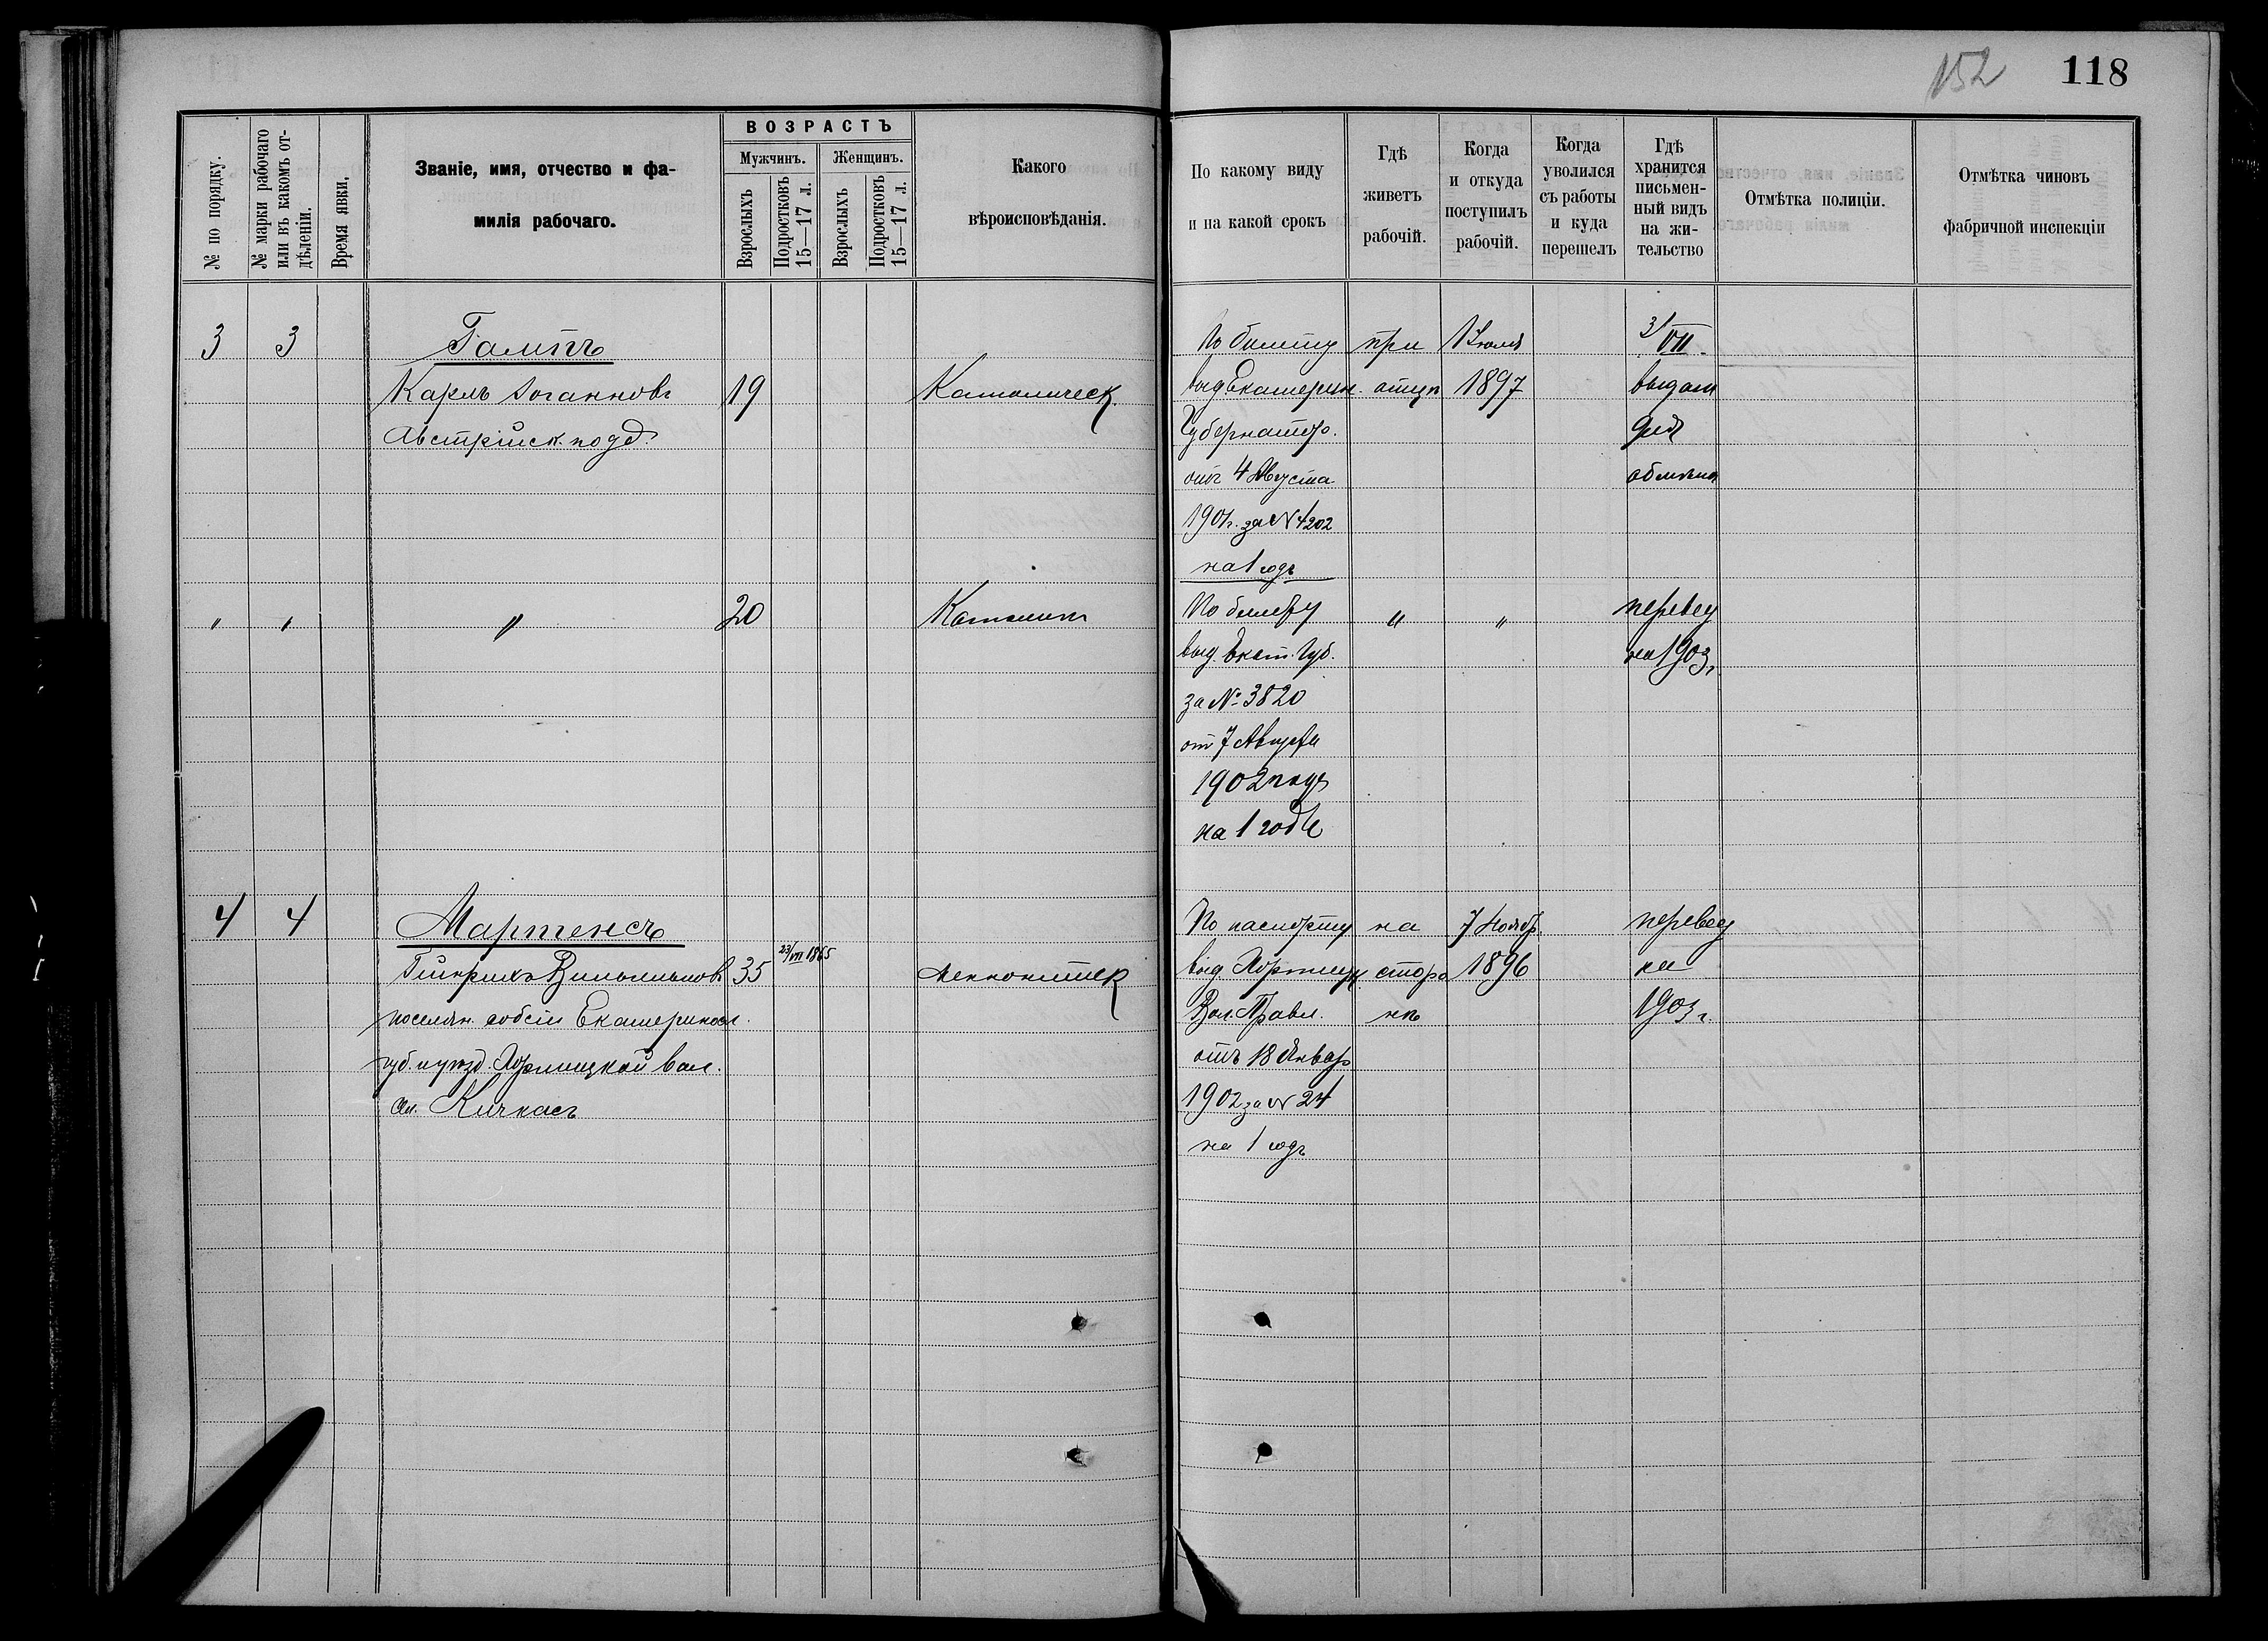 152 118
№ по порядку.
№ марки рабочаго или въ какомъ отдѣленіи.
Время явки.
Званіе, имя, отчество и фа-
милія рабочаго.
ВОЗРАСТЪ
Мужчинъ. Женщинъ.
Взрослыхъ
Подростковъ 15—17 л.
Взрослыхъ
Подростковъ 15—17 л.
Какого
вѣроисповѣданія.
По какому виду
и на какой срокъ
Гдѣ
живетъ
рабочій.
Когда
и откуда
поступилъ
рабочій.
Когда
уволился
съ работы
и куда
перешелъ
Гдѣ
хранится
письмен-
ный видъ
на жи-
тельство
Отмѣтка полиціи.
Отмѣтка чиновъ
фабричной инспекціи
3 3
Гампъ
Карлъ Іоганновъ 19 Католическ.
Австрійск. подд.
По билету
выд. Екатерин.
Губернатор.
отъ 4 Августа
1901г. за N 4202
на 1 годъ
при
отцѣ
1 Іюля
1897
3/VII
выдан
для
обмѣна
" " " 20 Католик
По билету
выд. Екат. Губ.
за № 3820
от 7 Августа
1902 года
на 1 годъ
" "
перевед
на 1903 г.
4 4
Мартенсъ
Гейнрихъ Вильгельмовъ 35 23/VII 1865 Меннонитск
поселян. собств Екатеринос.
губ. и уѣзд. Хортицкой вол.
Кичкасъ
По паспорту
выд. Хортицк.
Вол. Правл.
отъ 18 Январ
1902 за N 24
на 1 годъ
на
сторо
нѣ
7 Ноябр.
1896
перевед
на
1903 г.